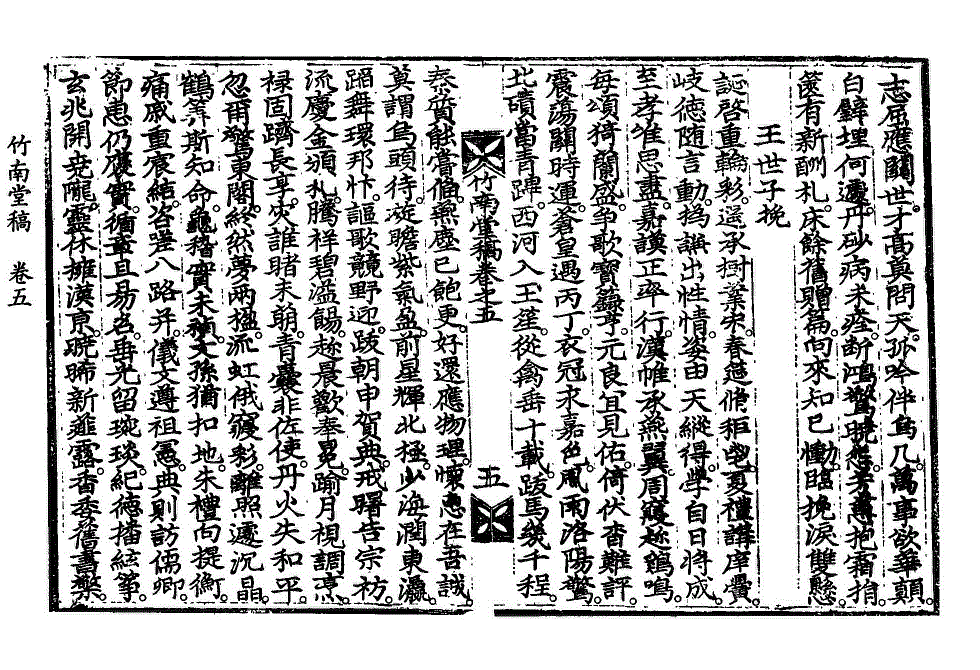 志屈應關世才高莫問天孤吟伴烏几萬事欲華顚
白鐽埋何遽丹砂病未痊斷鴻驚晩怨芳蕙抱霜捐
篋有新酬札床餘舊贈篇向來知己慟臨挽淚雙懸
王世子挽
誕啓重輪彩還承樹葉榮春筵脩秬鬯夏禮講庠黌
岐德随言動撝謙出性情姿由天縱得學自日將成
至孝惟思盡嘉謨正率行漢帷承燕翼周寢趁鷄鳴
每頌猗蘭盛爭歌寶籙亨元良宜見佑倚伏杳難評
震蕩關時運蒼皇遇丙丁衣冠求嘉色風雨洛陽驚
北磧當青 西河入玉筵從禽垂十載跋馬幾千程
竹南堂稿卷之五 五
秦質能嘗偹燕塵已飽更好還應物理懷悳在吾誠
莫謂烏頭待旋瞻紫氣盈前星輝北極少海潤東瀛
蹈舞環邦忭謳歌競野迎跋朝申賀典戒曙告宗祊
流慶金頒札騰祥碧溢餳趁晨歡奉冕踰月視調烹
禄固躋長享灾誰睹未萌青囊非佐使丹火失和平
忽爾驚東閣終然夢兩楹流虹俄寢彩離照遽沉晶
鶴筭斯知命龜稽實未禎文孫猶扣地朱禮向提衡
痛戚重宸結咨嗟八路并儀文遵祖憲典則訪儒卿
節恵仍覆實循章且易名垂光留琬琰紀德播絃箏
玄兆開堯隴靈休擁漢京晩晞新薤露杳杳舊書檠
竹南堂稿 卷五